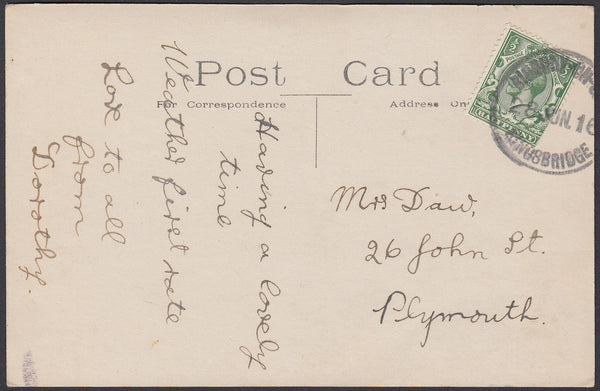 Post Card
For Correspondence
Address Only
Having a lovely
time
Weather first rate
Love to all
from
Dorothy.
Mrs Daw,
26 John St.
Plymouth.
HALFPENNY
JUN. 16
KINGSBRIDGE